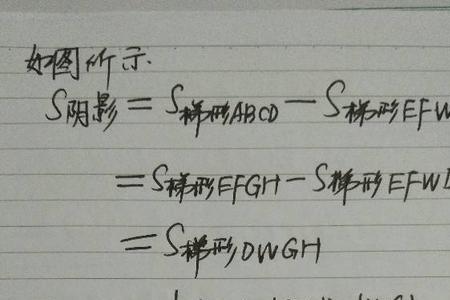 如图所示.
S阴影=S梯形ABCD-S梯形EFW
=S梯形EFGH-S梯形EFW
=S梯形DWGH